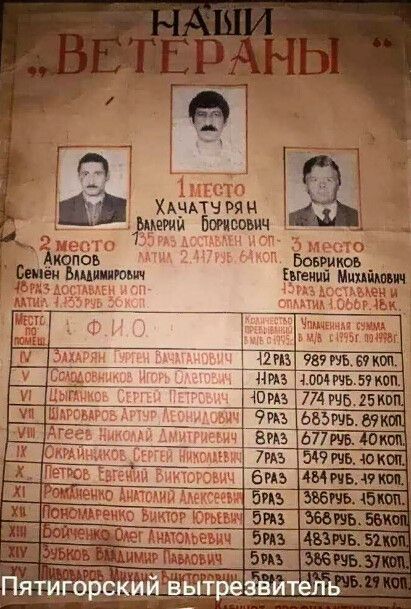 НАШИ
„ВЕТЕРАНЫ“
1 МЕСТО
ХАЧАТУРЯН
ВАЛЕРИЙ БОРИСОВИЧ
135 РАЗ ДОСТАВЛЕН И ОП-
ЛАТИЛ 2.417 РУБ. 64 КОП.
2 МЕСТО
АКОПОВ
СЕМЁН ВЛАДИМИРОВИЧ
18 РАЗ ДОСТАВЛЕН И ОП-
ЛАТИЛ 1.133 РУБ 36 КОП.
3 МЕСТО
БОБРИКОВ
ЕВГЕНИЙ МИХАЙЛОВИЧ
13 РАЗ ДОСТАВЛЕН И
ОПЛАТИЛ 1.086 Р. 18 К.
МЕСТО ПО ПОМЕЩ. Ф.И.О. КОЛИЧЕСТВО ПРЕБЫВАНИЙ В М/В С 1995г. УПЛАЧЕННАЯ СУММА В М/В с 1995г. по 1998г.
IV ЗАХАРЯН ГУРГЕН ВАЧАГАНОВИЧ 12 РАЗ 989 РУБ. 69 КОП.
V СОЛОДОВНИКОВ ИГОРЬ ОЛЕГОВИЧ 11 РАЗ 1.004 РУБ. 59 КОП.
VI ЦЫГАНКОВ СЕРГЕЙ ПЕТРОВИЧ 10 РАЗ 774 РУБ. 25 КОП.
VII ШАРОВАРОВ АРТУР ЛЕОНИДОВИЧ 9 РАЗ 683 РУБ. 89 КОП.
VIII АГЕЕВ НИКОЛАЙ ДМИТРИЕВИЧ 8 РАЗ 677 РУБ. 40 КОП.
IX ОКРАЙНИКОВ СЕРГЕЙ НИКОЛАЕВИЧ 7 РАЗ 549 РУБ. 10 КОП.
X ПЕТРОВ ЕВГЕНИЙ ВИКТОРОВИЧ 6 РАЗ 484 РУБ. 19 КОП.
XI РОМАНЕНКО АНАТОЛИЙ АЛЕКСЕЕВИЧ 5 РАЗ 386 РУБ. 15 КОП.
XII ПОНОМАРЕНКО ВИКТОР ЮРЬЕВИЧ 5 РАЗ 368 РУБ. 56 КОП
XIII БОЙЧЕНКО ОЛЕГ АНАТОЛЬЕВИЧ 5 РАЗ 483 РУБ. 52 КОП.
XIV ЗУБКОВ ВЛАДИМИР ПАВЛОВИЧ 5 РАЗ 386 РУБ. 37 КОП.
XV ПИВОВАРОВ МИХАИЛ ВИКТОРОВИЧ 135 РУБ. 29 КОП.
Пятигорский вытрезвитель